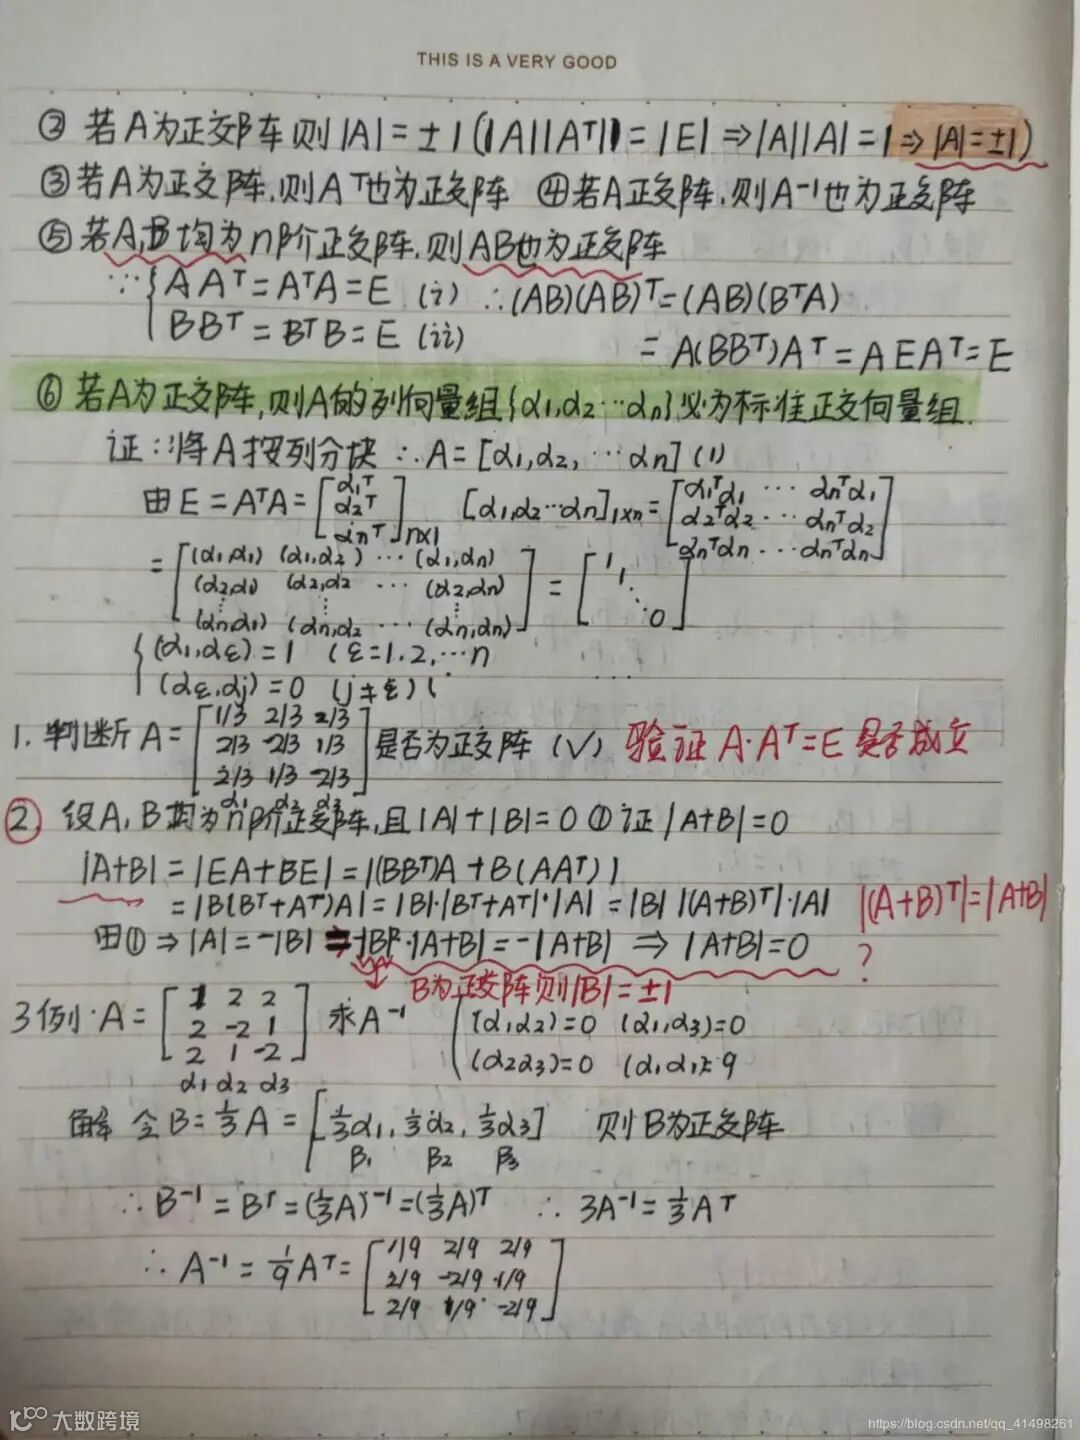 THIS IS A VERY GOOD
② 若A为正交阵则|A|=±1(|A||Aᵀ|=|E|⇒|A||A|=1⇒|A|=±1)
③若A为正交阵,则Aᵀ也为正交阵 ④若A正交阵,则A⁻¹也为正交阵
⑤若A,B均为n阶正交阵,则AB也为正交阵
∵{AAᵀ=AᵀA=E (i) ∴(AB)(AB)ᵀ=(AB)(BᵀA)
BBᵀ=BᵀB=E (ii)
=A(BBᵀ)Aᵀ=AEAᵀ=E
⑥若A为正交阵,则A的列向量组{α1,α2⋯αn}必为标准正交向量组.
证:将A按列分块 ∴A=[α1,α2,⋯αn] (1)
由E=AᵀA=[α1ᵀ α2ᵀ αnᵀ]n×1 [α1,α2⋯αn]1×n=[α1ᵀα1 ⋯ αnᵀα1
α2ᵀα2 ⋯ αnᵀα2
αnᵀαn ⋯ αnᵀαn]
=[(α1,α1) (α1,α2) ⋯ (α1,αn)
(α2,α1) (α2,α2 ⋯ (α2,αn)
⋮ ⋮
(αn,α1) (αn,α2 ⋯ (αn,αn)] = [1 1 ⋱ 0]
{(α1,αε)=1 (ε=1.2,⋯n
(αε,αj)=0 (j≠ε)(
1. 判断A=[1/3 2/3 2/3
2/3 -2/3 1/3
2/3 1/3 -2/3] 是否为正交阵 (√) 验证A·Aᵀ=E是否成立
α1 α2 α3
②. 设A,B均为n阶正交阵,且|A|+|B|=0 ① 证|A+B|=0
|A+B|=|EA+BE|=|(BBᵀ)A+B(AAᵀ)|
=|B(Bᵀ+Aᵀ)A|=|B|·|Bᵀ+Aᵀ|·|A|=|B| |(A+B)ᵀ|·|A| |(A+B)ᵀ|=|A+B|
由①⇒|A|=-|B| ⇒-|B|²·|A+B|=-|A+B| ⇒|A+B|=0 ?
B为正交阵则|B|=±1
3例·A=[1 2 2
2 -2 1
2 1 -2] 求A⁻¹ {(α1,α2)=0 (α1,α3)=0
(α2α3)=0 (α1,α1)=9
α1 α2 α3
解 令B=⅓A=[⅓α1,⅓α2,⅓α3] 则B为正交阵
β1 β2 β3
∴B⁻¹=Bᵀ=(⅓A)⁻¹=(⅓A)ᵀ ∴3A⁻¹=⅓Aᵀ
∴A⁻¹=1/9Aᵀ=[1/9 2/9 2/9
2/9 -2/9 1/9
2/9 1/9 -2/9]
大数跨境
https://blog.csdn.net/qq_41498261